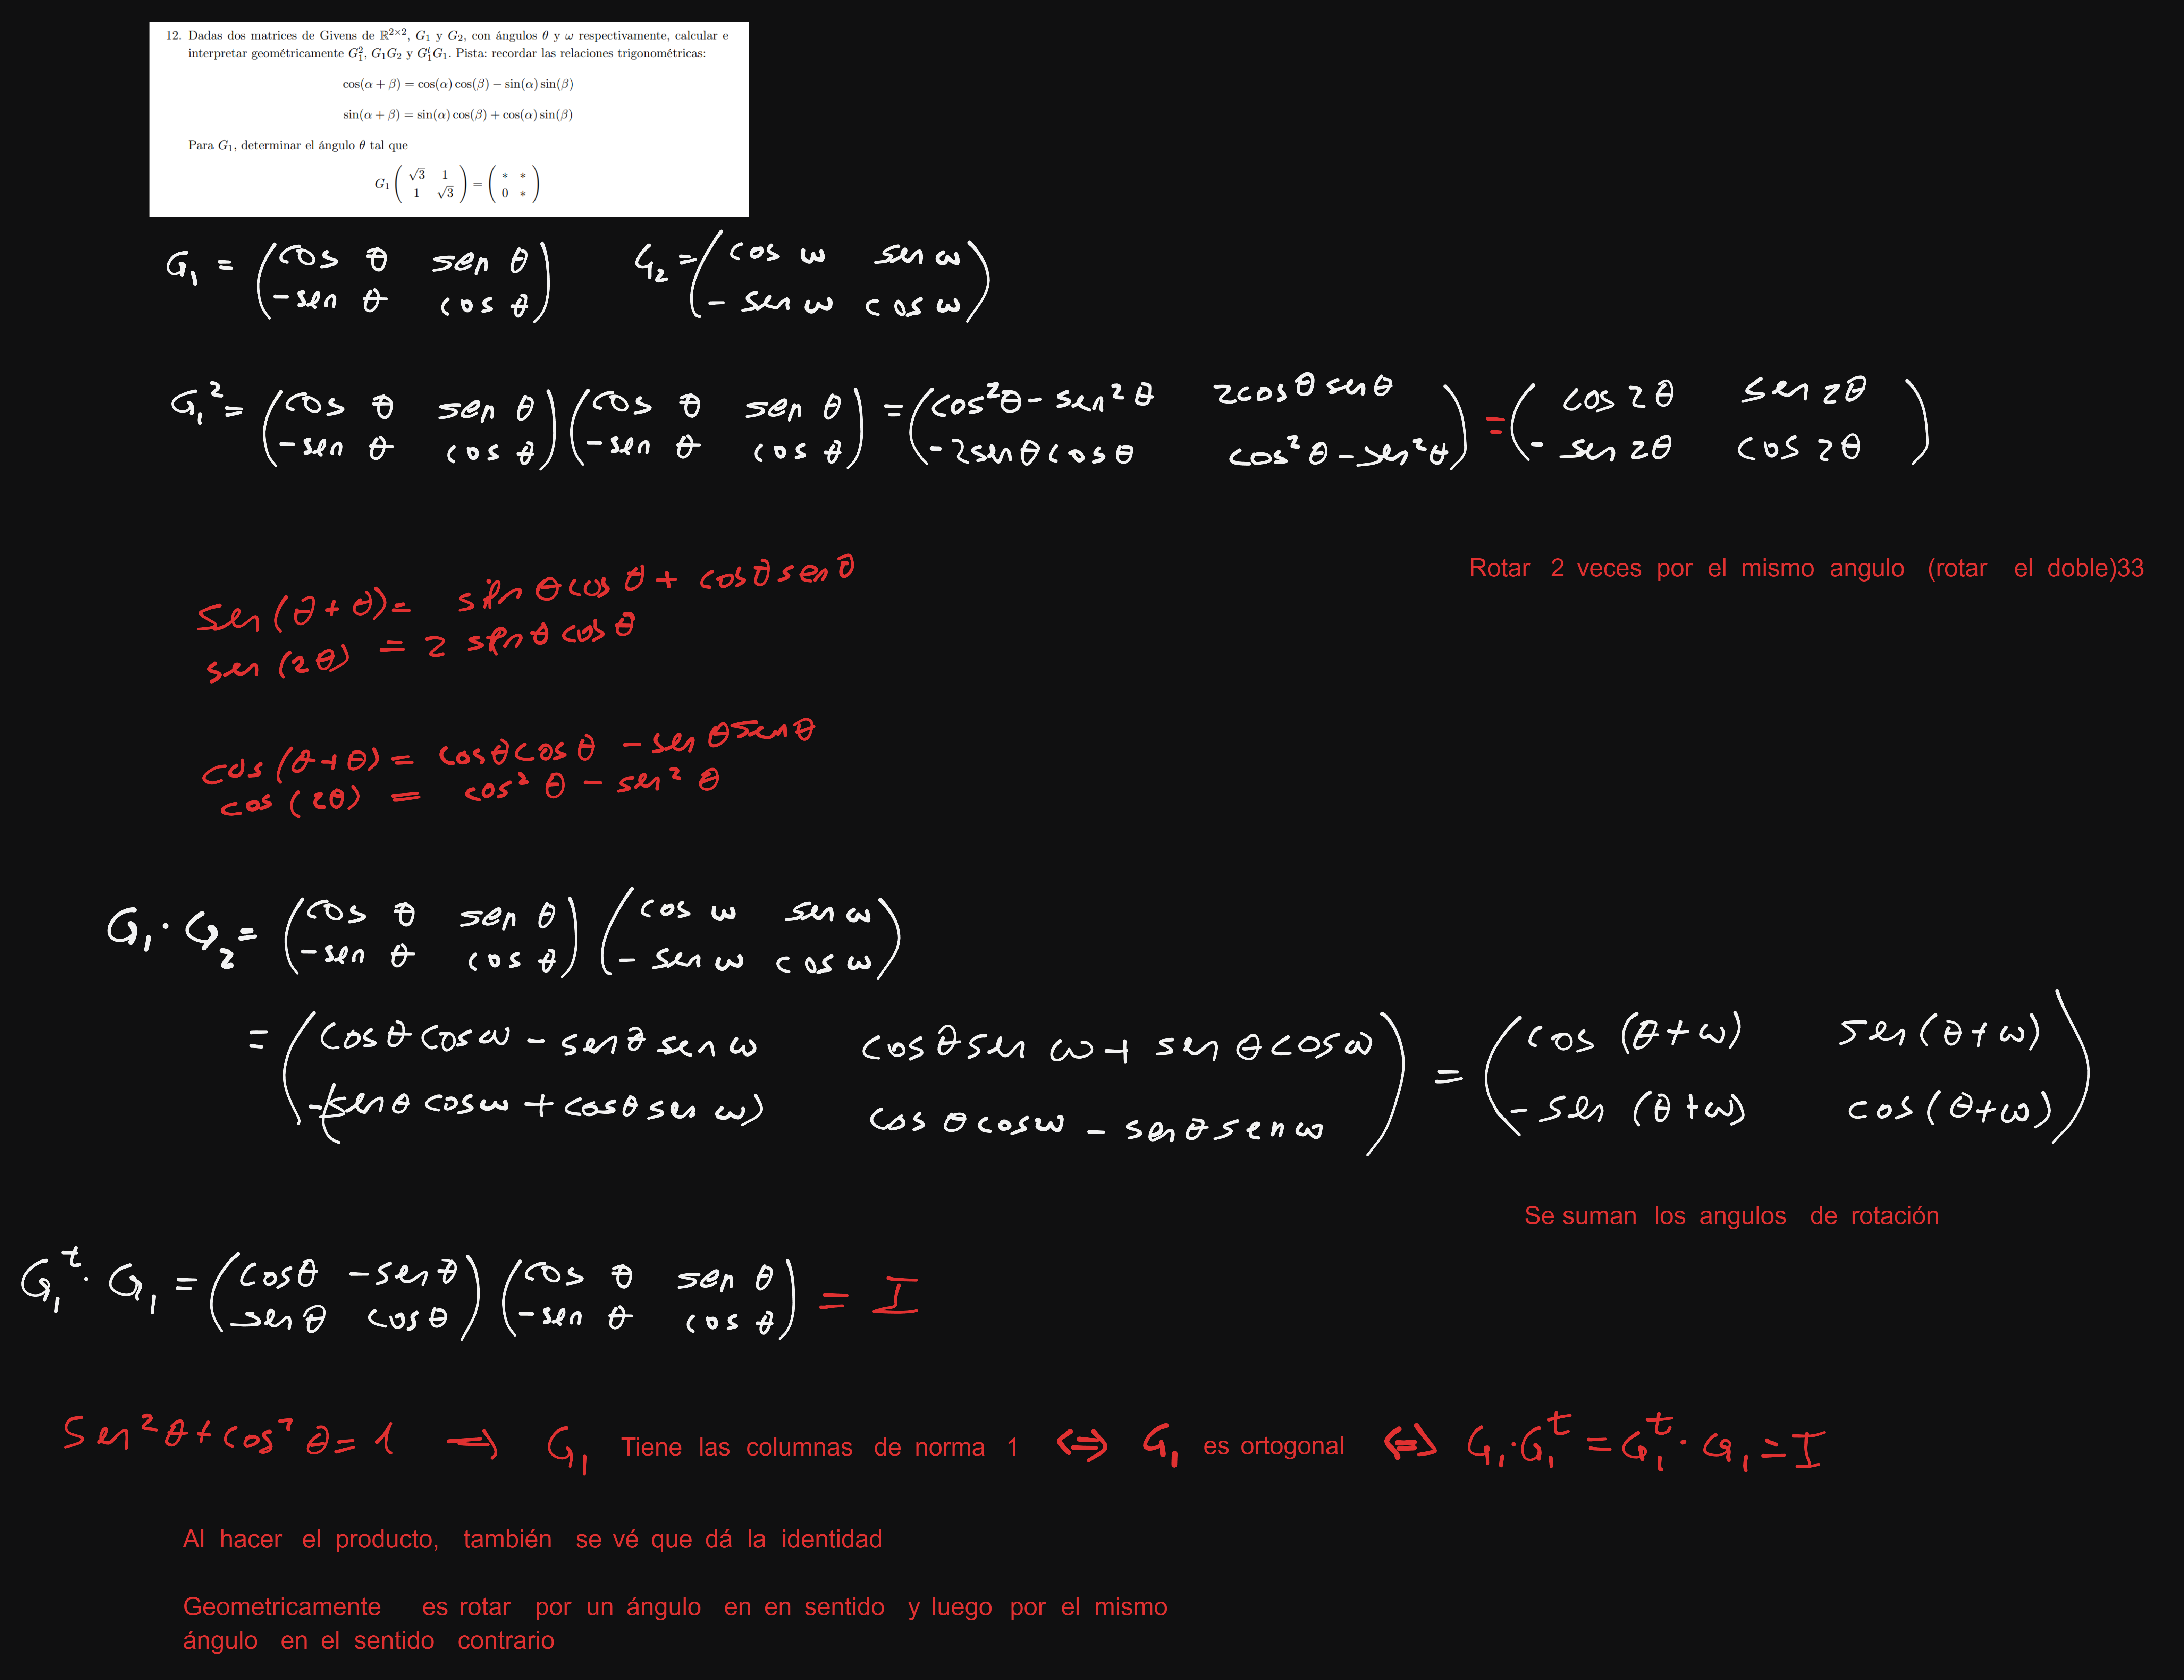 12. Dadas dos matrices de Givens de ℝ^{2×2}, G₁ y G₂, con ángulos θ y ω respectivamente, calcular e
interpretar geométricamente G₁², G₁G₂ y G₁ᵗG₁. Pista: recordar las relaciones trigonométricas:
cos(α + β) = cos(α) cos(β) − sin(α) sin(β)
sin(α + β) = sin(α) cos(β) + cos(α) sin(β)
Para G₁, determinar el ángulo θ tal que
G₁ ( √3 1 ; 1 √3 ) = ( * * ; 0 * )
G₁ = ( cos θ sen θ ; −sen θ cos θ ) G₂ = ( cos ω sen ω ; −sen ω cos ω )
G₁² = ( cos θ sen θ ; −sen θ cos θ ) ( cos θ sen θ ; −sen θ cos θ ) = ( cos²θ − sen²θ 2cosθ senθ ; −2senθ cosθ cos²θ − sen²θ ) = ( cos 2θ sen 2θ ; −sen 2θ cos 2θ )
Rotar 2 veces por el mismo angulo (rotar el doble)33
sen (θ + θ) = sen θ cos θ + cos θ sen θ
sen (2θ) = 2 sen θ cos θ
cos (θ + θ) = cos θ cos θ − sen θ sen θ
cos (2θ) = cos² θ − sen² θ
G₁ · G₂ = ( cos θ sen θ ; −sen θ cos θ ) ( cos ω sen ω ; −sen ω cos ω )
= ( cosθ cosω − senθ sen ω cosθ sen ω + sen θ cosω ; −(senθ cosω + cosθ sen ω) cosθ cosω − senθ sen ω ) = ( cos (θ+ω) sen (θ+ω) ; −sen (θ+ω) cos (θ+ω) )
Se suman los angulos de rotación
G₁ᵗ · G₁ = ( cosθ −senθ ; senθ cosθ ) ( cos θ sen θ ; −sen θ cos θ ) = I
Sen²θ + cos²θ = 1 → G₁ Tiene las columnas de norma 1 ⇔ G₁ es ortogonal ⇔ G₁·G₁ᵗ = G₁ᵗ·G₁ = I
Al hacer el producto, también se vé que dá la identidad
Geometricamente es rotar por un ángulo en en sentido y luego por el mismo
ángulo en el sentido contrario